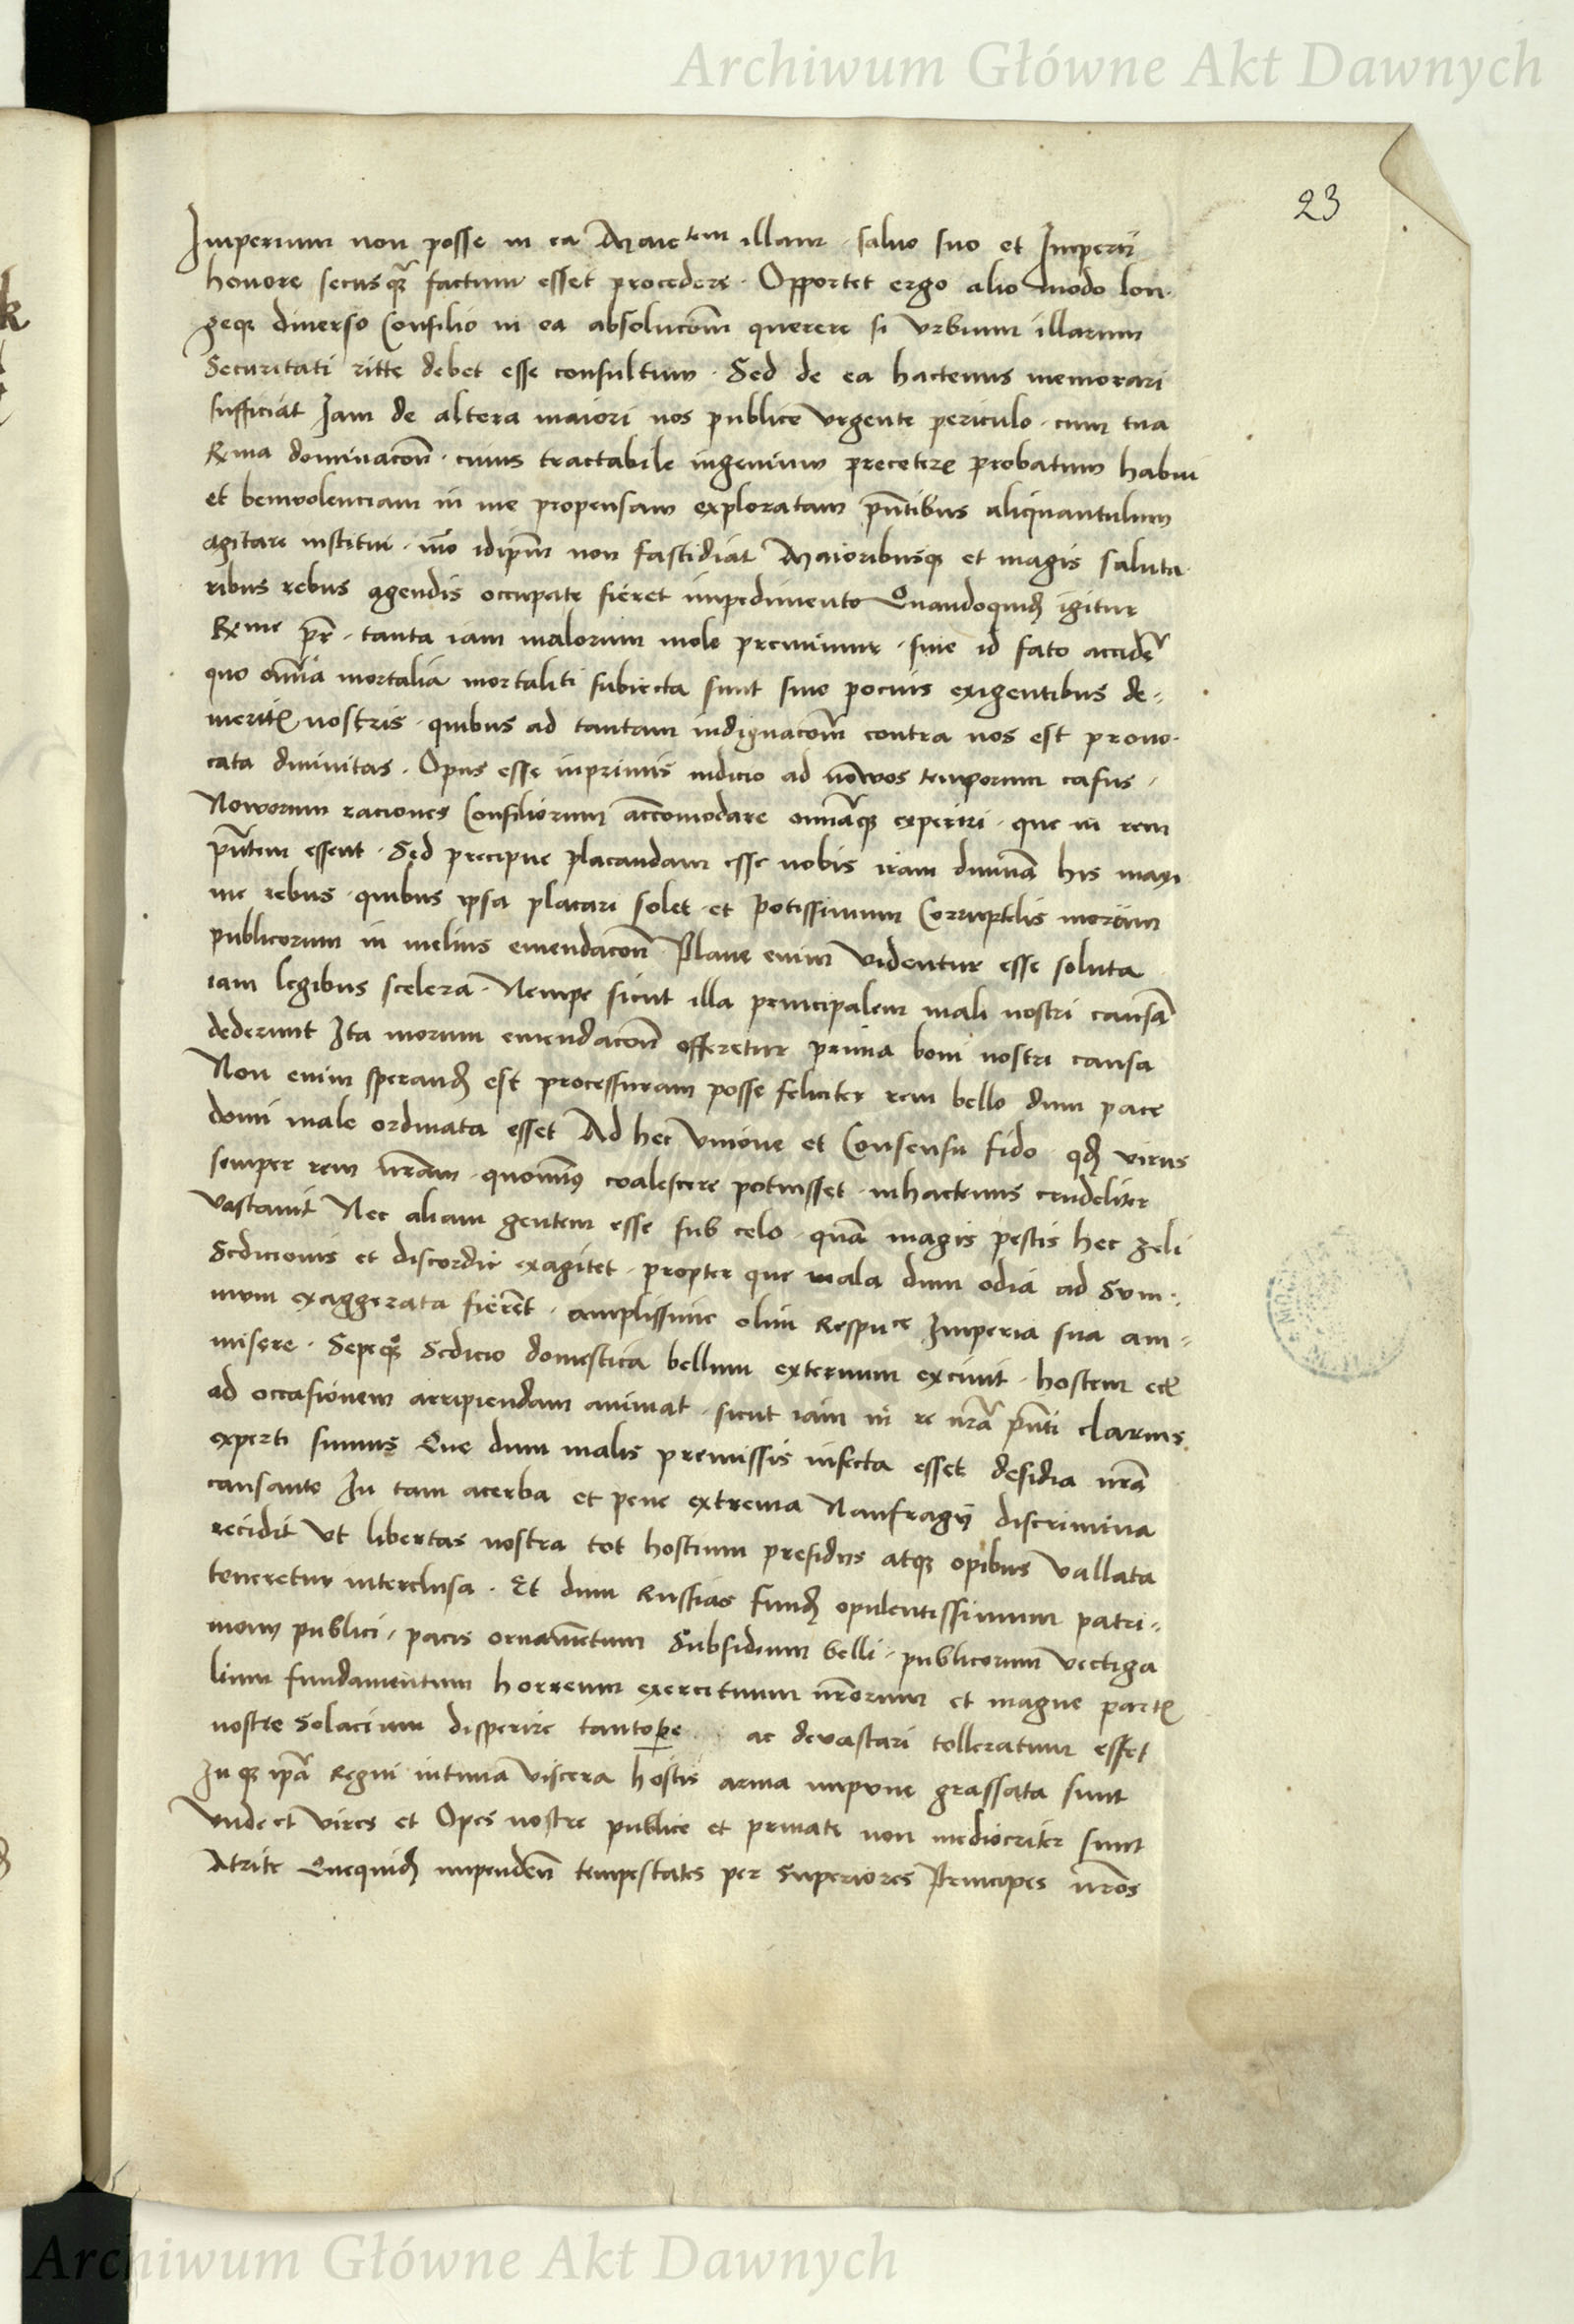 Archiwum Główne Akt Dawnych
23
Imperium non posse in ea Maiestatem illam · saluo suo et Imperii
honore secusq͛ factum esset procedere · Opportet ergo alio modo lon·
geqꝫ diuerso Consilio in ea absolucōm querere si Vrbium illarum
Securitati ritte debet esse consultum · Sed de ea hactenus memorari
sufficiat Jam de altera maiori nos publice Vrgente periculo · cum tua
Rx̄ma dominacōn · cuius tractabile ingenium precetere probatum habui
et beniuolenciam in me propensam exploratam pn̄tibus aliquantulum
agitare institui · mō idip̄m non fastidiat Maioribusqꝫ et magis saluta·
ribus rebus agendis occupate fieret impedimento Quandoquidꝫ igitur
Rx̄me pr̄ · tanta iam malorum mole premimur · siue id fato accider̄
quo om̄ia mortalia mortaliti subiecta sunt siue pocius exigentibus de=
meritꝭ nostris · quibus ad tantam indignacōm contra nos est prouo·
cata diuinitas · Opus esse inprimis iudicio ad nowos temporum casus ·
Noworum raciones Consiliorum accomodare omn̄iaqꝫ experiri · que in rem
pn̄tem essent · Sed precipue placandam esse nobis iram diuinā his maxi
me rebus · quibus ipsa placari solet · et potissimum Corruptelis morum
publicorum in melius emendacōn Plane enim Videntur esse soluta
iam legibus scelera · Nempe sicut illa principalem mali nostri causā
dederunt Ita morum emendacōn offeretur prima boni nostri causa
Non enim sperandꝫ est processuram posse feliciter rem bello dum pace
domi male ordinata esset Ad hec Vnione et Consensu fido qdꝫ virus
semper rem nr̄am · quominꝰ coalescere potuisset · inhactenus crudeliter
Vastauit Nec aliam gentem esse sub celo · quā magis pestis hec zeli
Sedicionis et discordie exagitet · propter que mala dum odia ad Sum=
mum exaggerata fierēt · amplissime olim Respuce Imperia sua am=
misere · Sepeqꝫ Sedicio domestica bellum externum exciuit · hostem
ad occasionem arripiendam animat · sicut iam in re nr̄a pn̄ti clarius
experti sumus Que dum malis premissis infecta esset desidia nr̄a
causante In tam acerba et pene extrema Naufragij discrimina
recidit Vt libertas nostra tot hostium presidijs atqꝫ opibus Vallata
teneretur interclusa · Et dum Russias fundꝫ opulentissimum patri=
monij publici · pacis ornamentum Subsidium belli · publicorum Vectiga
lium fundamentum horreum exercituum nr̄orum et magne partꝭ
nostre Solacium disperire tantope ac deuastari tolleratum esset
In qꝫ ip̄a Regni intima Viscera hostis arma impune grassata sunt
Vnde et Vires et Opes nostre publice et priuate non mediocriter sunt
Atrite Quequidꝫ impendēn tempestates per Superiores Principes nr̄os
Archiwum Główne Akt Dawnych